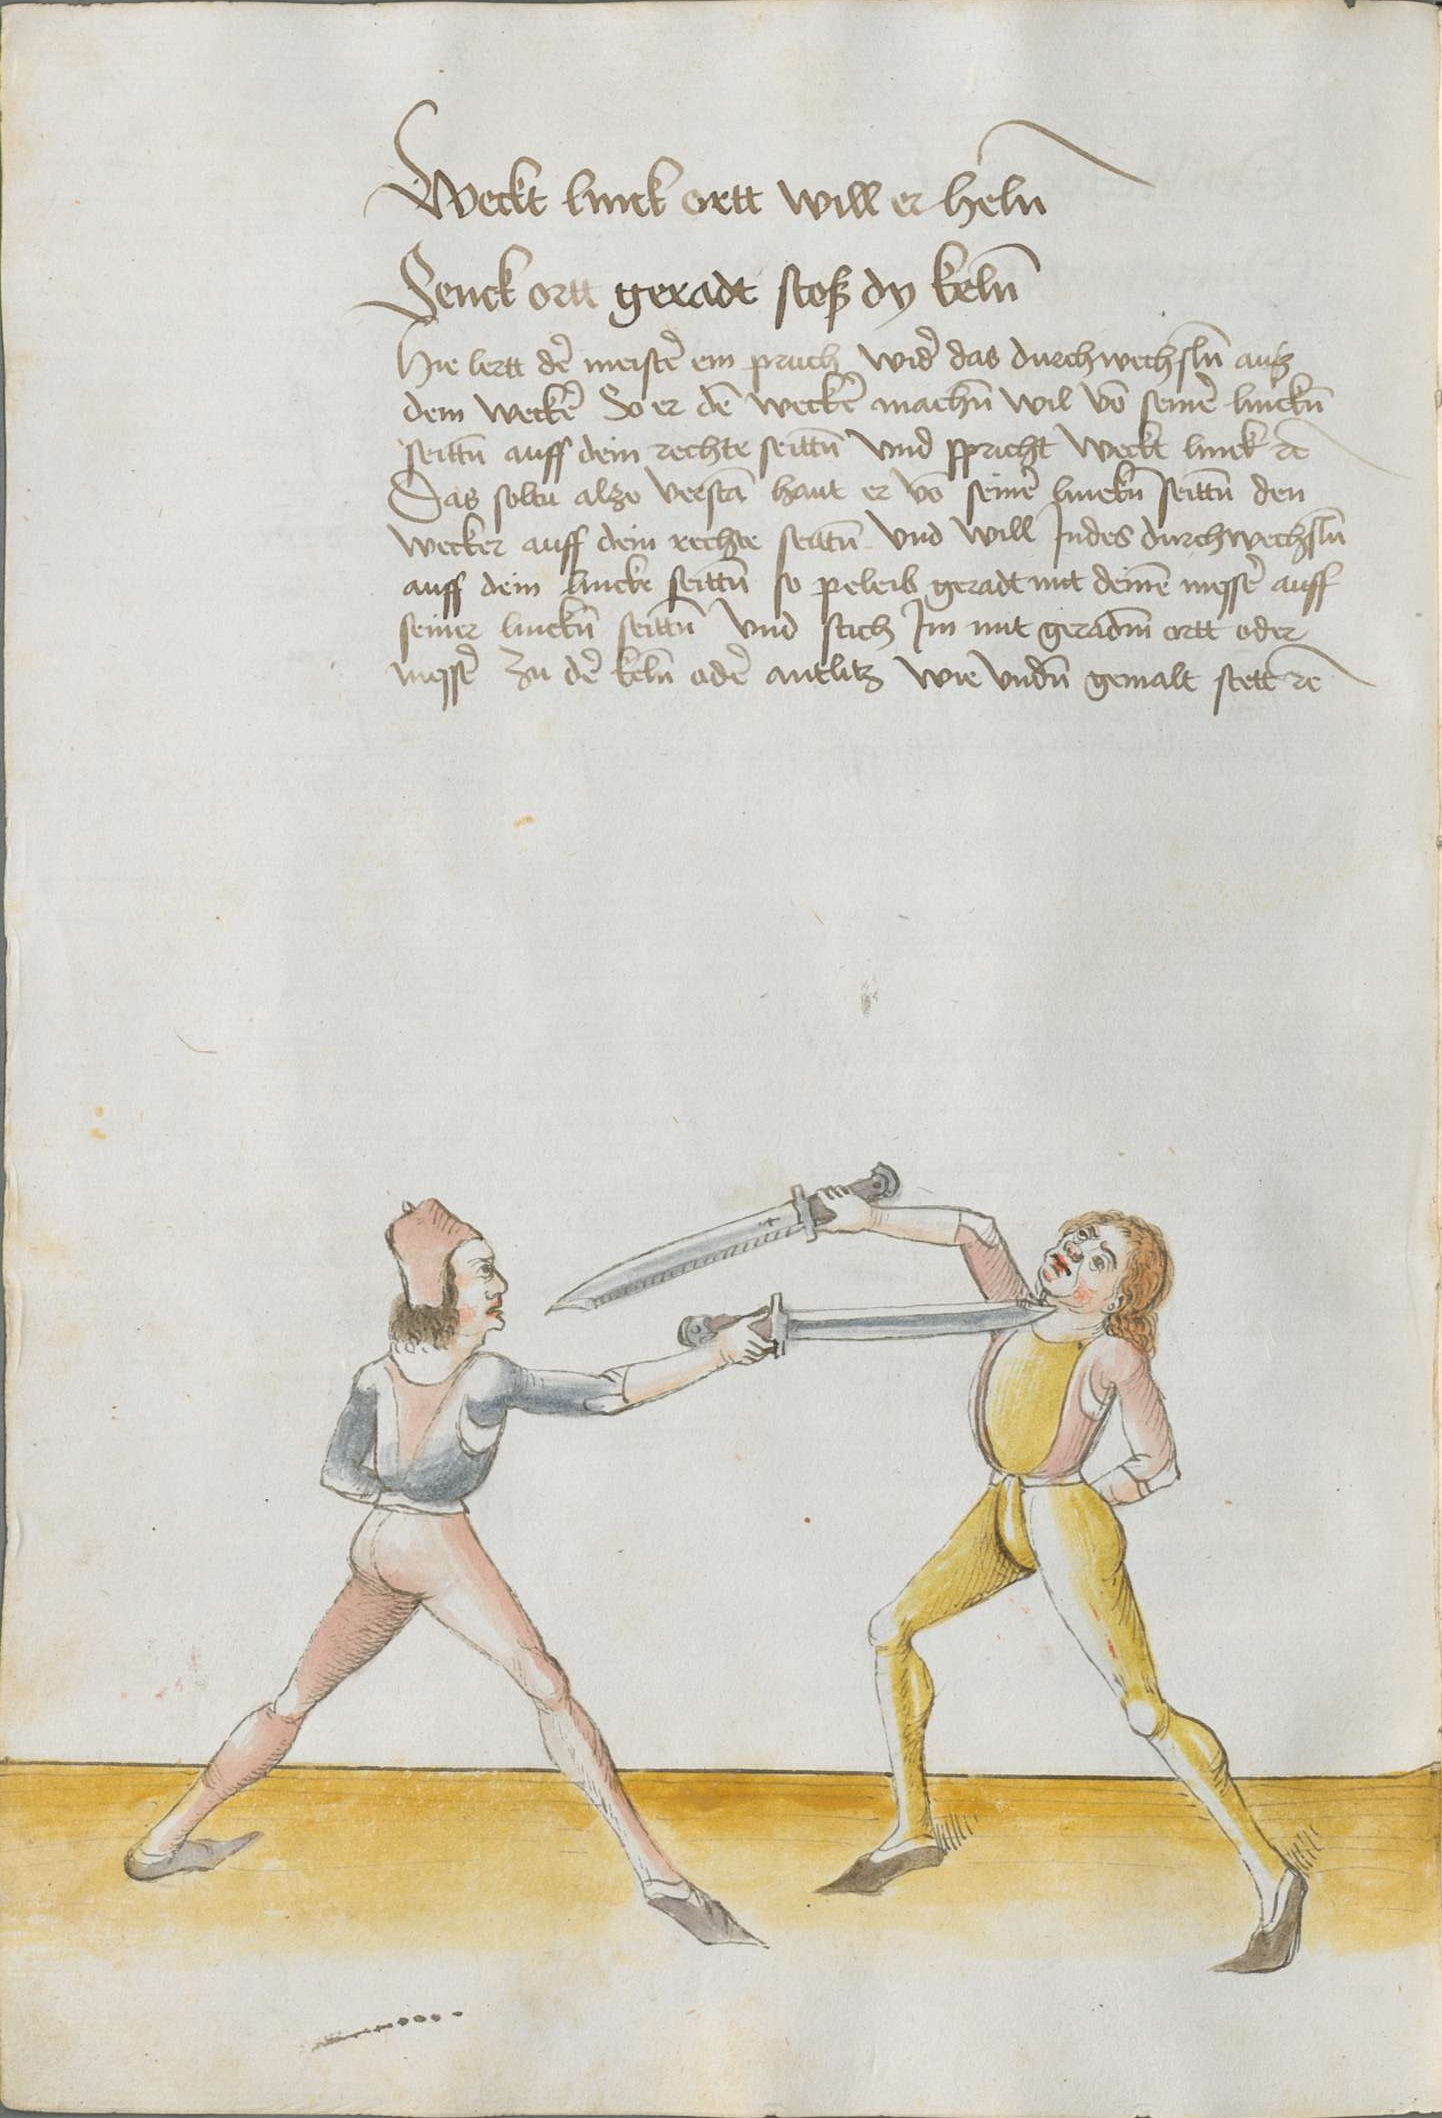 Weckt linck ortt will er heln̄
Senck ortt geradt stoß dy keln̄
Hie lertt de᷑ meiste᷑ ein pruch wid᷑ das durchwechsln̄ auß
dem wecke᷑ So er de᷑ wecke᷑ machn̄ wil vō seine᷑ linckn̄
seittn̄ auff dein rechte seittn̄ vnd spricht weckt linck ꝛc
Das soltu also verstā haut er vō seine᷑ linckn̄ seittn̄ den
wecker auff dein rechte seittn̄ vnd will Jndes durchwechsln̄
auff dein lincke seittn̄ so peleib geradt mit deinē messe᷑ auff
seiner linckn̄ seittn̄ vnd stich Jm mit geradm̄ ortt oder
messe᷑ zu de᷑ keln̄ ode᷑ antlitz wie vndn̄ gemalt stett ꝛc